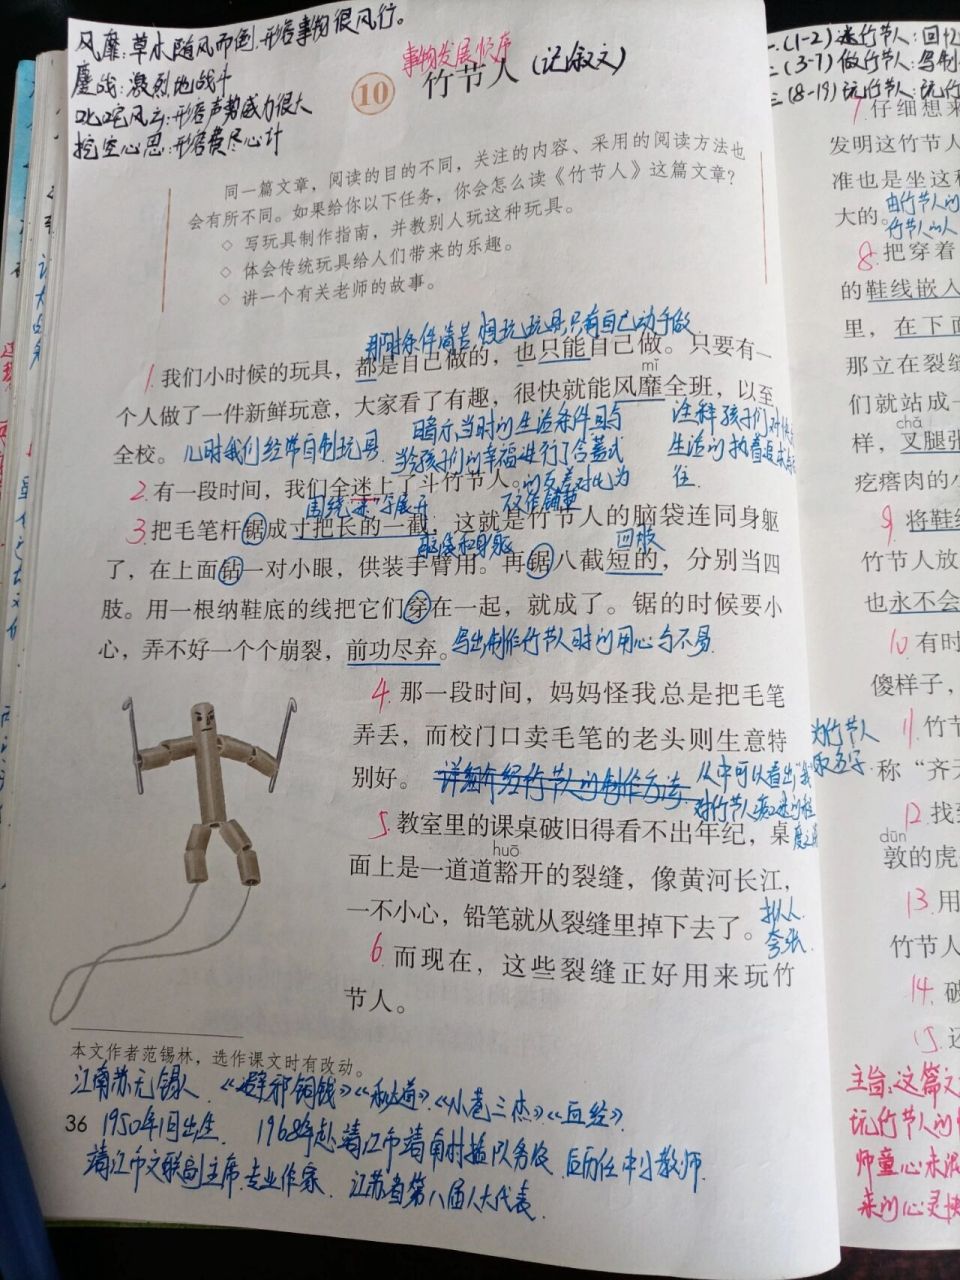 风靡:草木随风而倒,形容事物很风行。
鏖战:激烈地战斗
叱咤风云:形容声势威力很大
挖空心思:形容费尽心计
事物发展顺序
10 竹节人(记叙文)
同一篇文章,阅读的目的不同,关注的内容、采用的阅读方法也
会有所不同。如果给你以下任务,你会怎么读《竹节人》这篇文章?
◇ 写玩具制作指南,并教别人玩这种玩具。
◇ 体会传统玩具给人们带来的乐趣。
◇ 讲一个有关老师的故事。
那时条件清苦,想玩玩具只有自己动手做
1.我们小时候的玩具,都是自己做的,也只能自己做。只要有一
mǐ
个人做了一件新鲜玩意,大家看了有趣,很快就能风靡全班,以至
全校。
儿时我们经常自制玩具
暗示当时的生活条件且与
当给孩子们的幸福进行了
注释孩子们对
生活的执着追求
往.
2.有一段时间,我们全迷上了斗竹节人。
围绕"迷"字展开
下文作铺垫
3.把毛笔杆锯成寸把长的一截,这就是竹节人的脑袋连同身躯
脑袋和身躯
四肢
了,在上面钻一对小眼,供装手臂用。再锯八截短的,分别当四
肢。用一根纳鞋底的线把它们穿在一起,就成了。锯的时候要小
心,弄不好一个个崩裂,前功尽弃。写出制作竹节人时的用心与不易
4.那一段时间,妈妈怪我总是把毛笔
弄丢,而校门口卖毛笔的老头则生意特
别好。详细介绍竹节人的制作方法
从中可以看出"我"
对竹节人痴迷的程
度之深
5.教室里的课桌破旧得看不出年纪,桌
huō
面上是一道道豁开的裂缝,像黄河长江,
一不小心,铅笔就从裂缝里掉下去了。
拟人
夸张.
6.而现在,这些裂缝正好用来玩竹
节人。
本文作者范锡林,选作课文时有改动。
江南苏无锡人 《避邪铜钱》《秘道》《小巷三杰》《血经》
36 1950年1月出生 1968年赴靖江市靖南村插队务农 后历任中小教师
靖江市文联副主席,专业作家 江苏省第八届人大代表.
一.(1-2)迷竹节人:回忆
二(3-7)做竹节人:写制作
三(8-19)玩竹节人:玩
7.仔细想来
发明这竹节人
准也是坐这种
大的。
由竹节人的
竹节人的人
8.把穿着
的鞋线嵌入
里,在下面
那立在裂缝
们就站成一
chǎ
样,叉腿张
疙瘩肉的小
9.将鞋线
竹节人放
也永不会
10.有时
傻样子,
11.竹节
为竹节人
取名字
称“齐天
12.找到
dūn
敦的虎
13.用
竹节人
14.破
15.还
主旨:这篇文
玩竹节人的
师童心未泯
来的心灵快